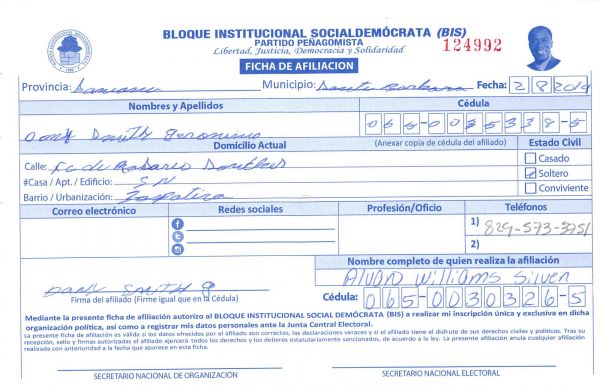 BLOQUE INSTITUCIONAL SOCIALDEMÓCRATA (BIS)
PARTIDO PEÑAGOMISTA
Libertad, Justicia, Democracia y Solidaridad
124992
FICHA DE AFILIACION
Provincia: Samaná Municipio: Santa Barbara Fecha: 2 8 2019
Nombres y Apellidos Cédula
Dany Smith Geronimo 065-0035338-5
Domicilio Actual (Anexar copia de cédula del afiliado) Estado Civil
Calle: Rosario Casado
#Casa / Apt. / Edificio: SN Soltero
Barrio / Urbanización: Conviviente
Correo electrónico Redes sociales Profesión/Oficio Teléfonos
1) 829-573-3751
2)
Nombre completo de quien realiza la afiliación
Alvaro Williams Silven
DANY SMITH G
Firma del afiliado (Firme igual que en la Cédula) Cédula: 065-0030326-5
Mediante la presente ficha de afiliación autorizo al BLOQUE INSTITUCIONAL SOCIAL DEMÓCRATA (BIS) a realizar mi inscripción única y exclusiva en dicha
organización política, asi como a registrar mis datos personales ante la Junta Central Electoral.
La presente ficha de afiliación es válida si los datos ofrecidos por el afiliado son correctos, las declaraciones veraces y si el afiliado tiene el disfrute de sus derechos civiles y políticos. Tras su
recepción, sello y firmas autorizadas el afiliado ejercerá todos los derechos y los deberes estatutariamente sancionados, de acuerdo a la ley. La presente afiliación anula cualquier afiliación
realizada con anterioridad a la fecha que aparece en esta ficha.
SECRETARIO NACIONAL DE ORGANIZACIÓN SECRETARIO NACIONAL ELECTORAL